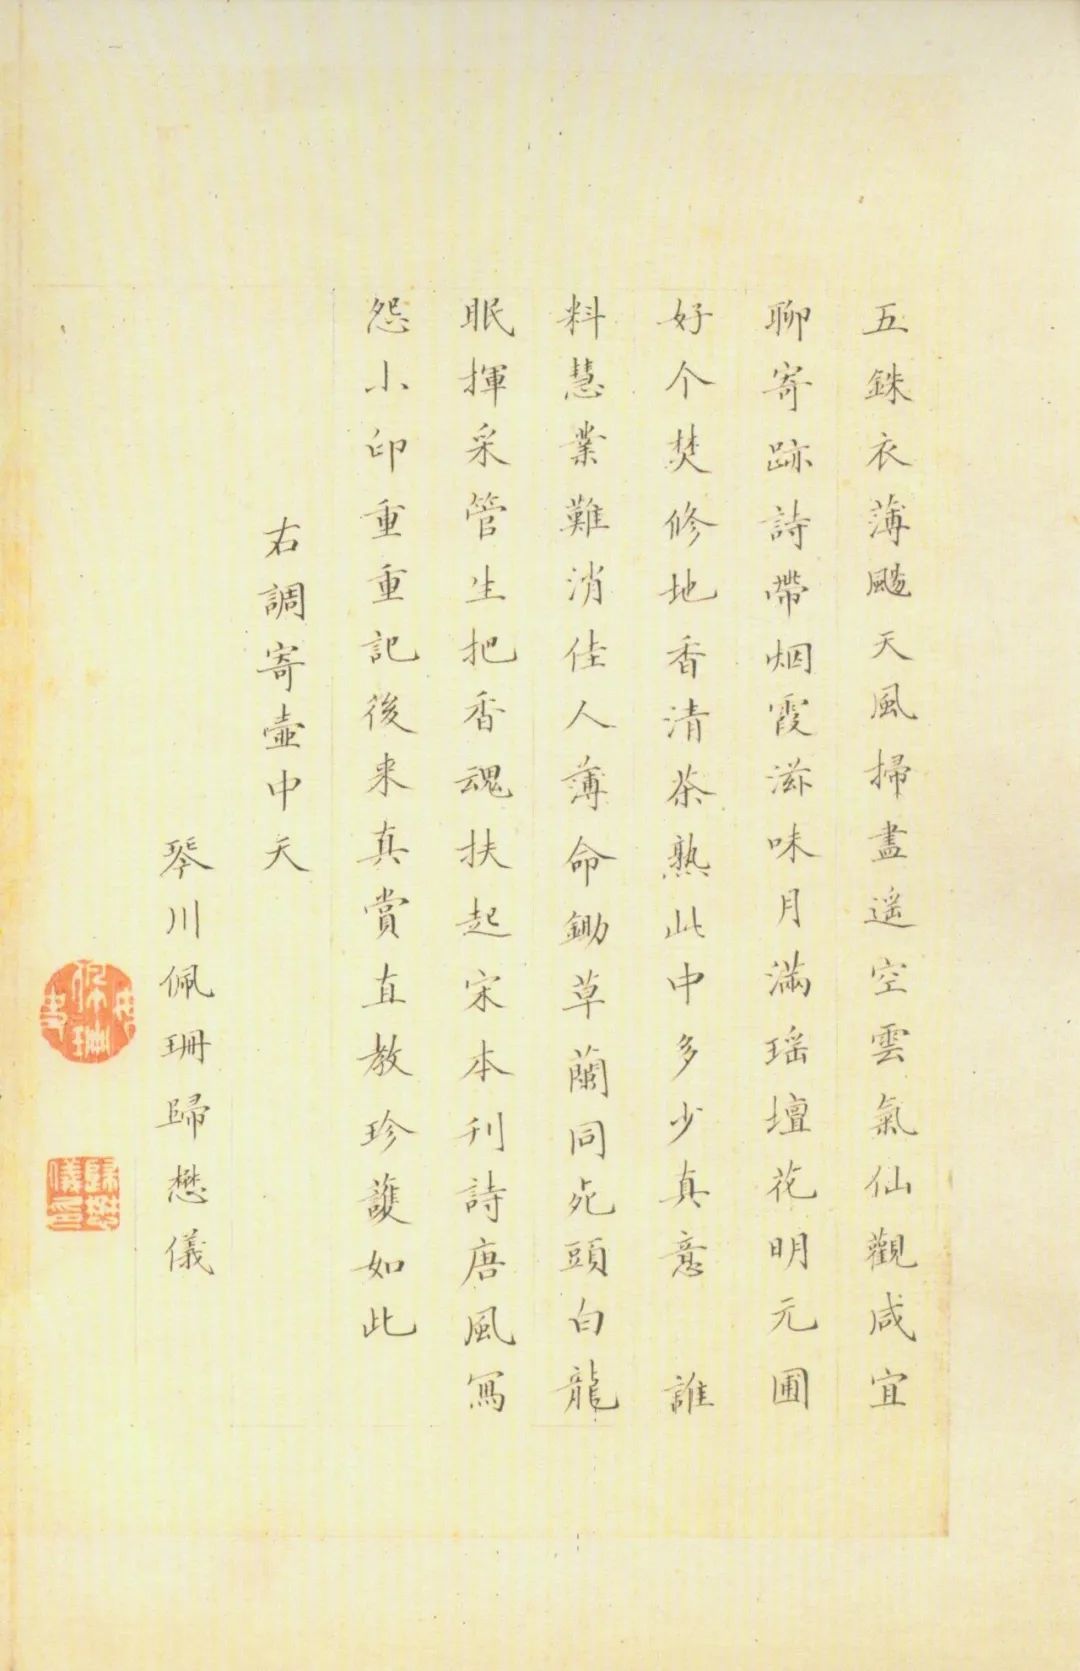 五銖衣薄颺天風掃盡遥空雲氣仙觀咸宜
聊寄跡詩帶烟霞滋味月滿瑶壇花明元圃
好个焚修地香清茶熟此中多少真意　誰
料慧業難消佳人薄命鋤草蘭同死頭白龍
眠揮采管生把香魂扶起宋本刊詩唐風寫
怨小印重重記後来真賞直教珍護如此
右調寄壷中天
琴川佩珊歸懋儀
佩珊
歸懋儀印